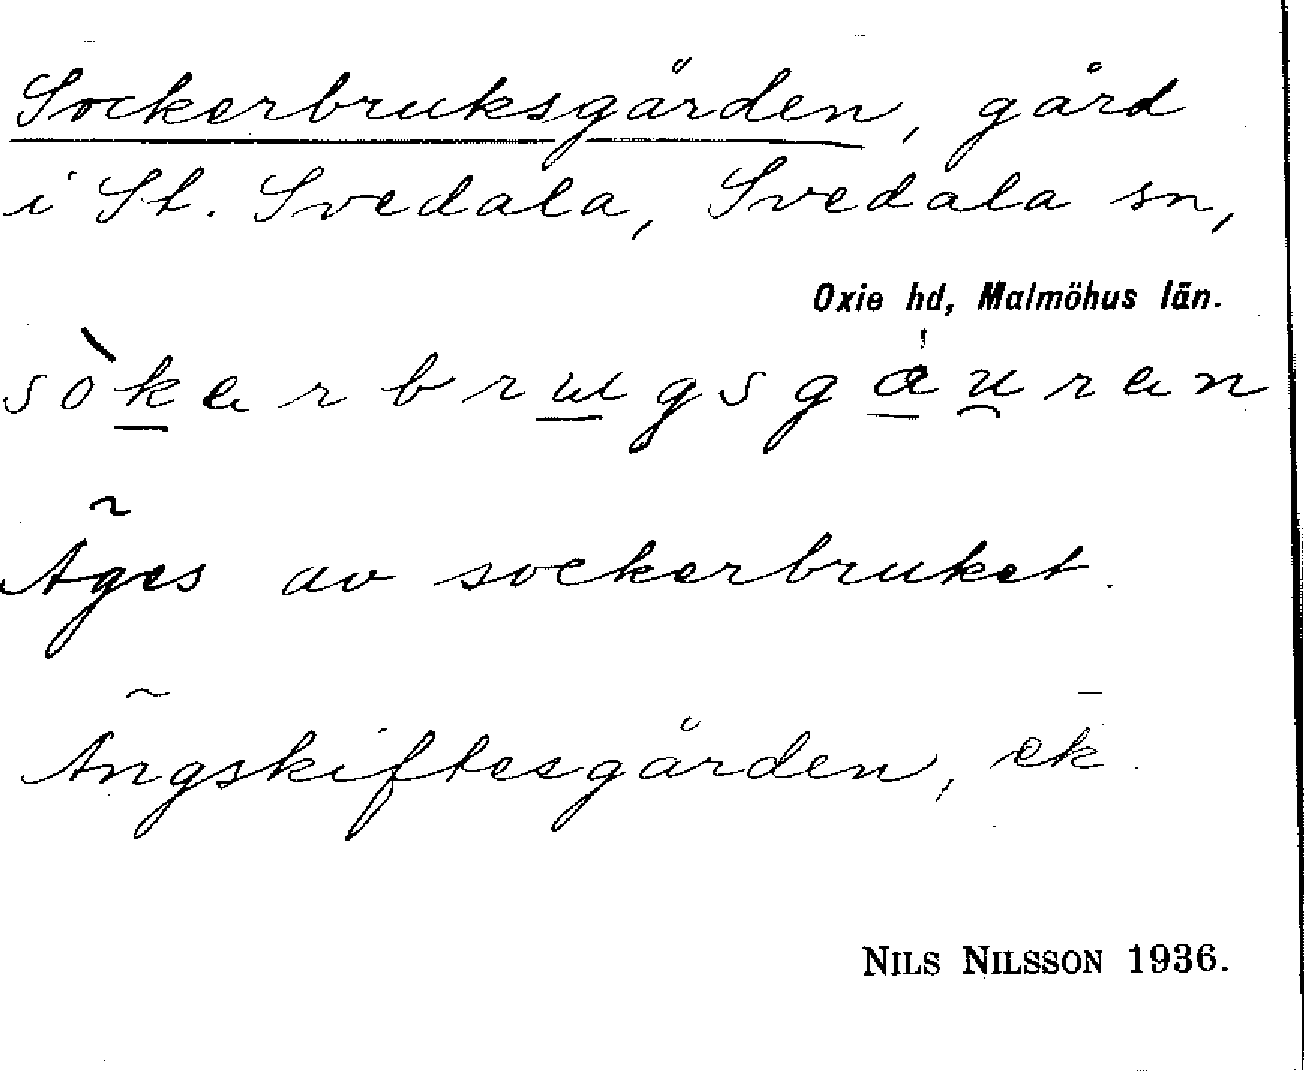 Sockerbruksgården, gård
i St. Svedala, Svedala sn,
Oxie hd, Malmöhus län.
sòkerbrugsgáuren
Äges av sockerbruket.
Ängskiftesgården, ek.
NILS NILSSON 1936.